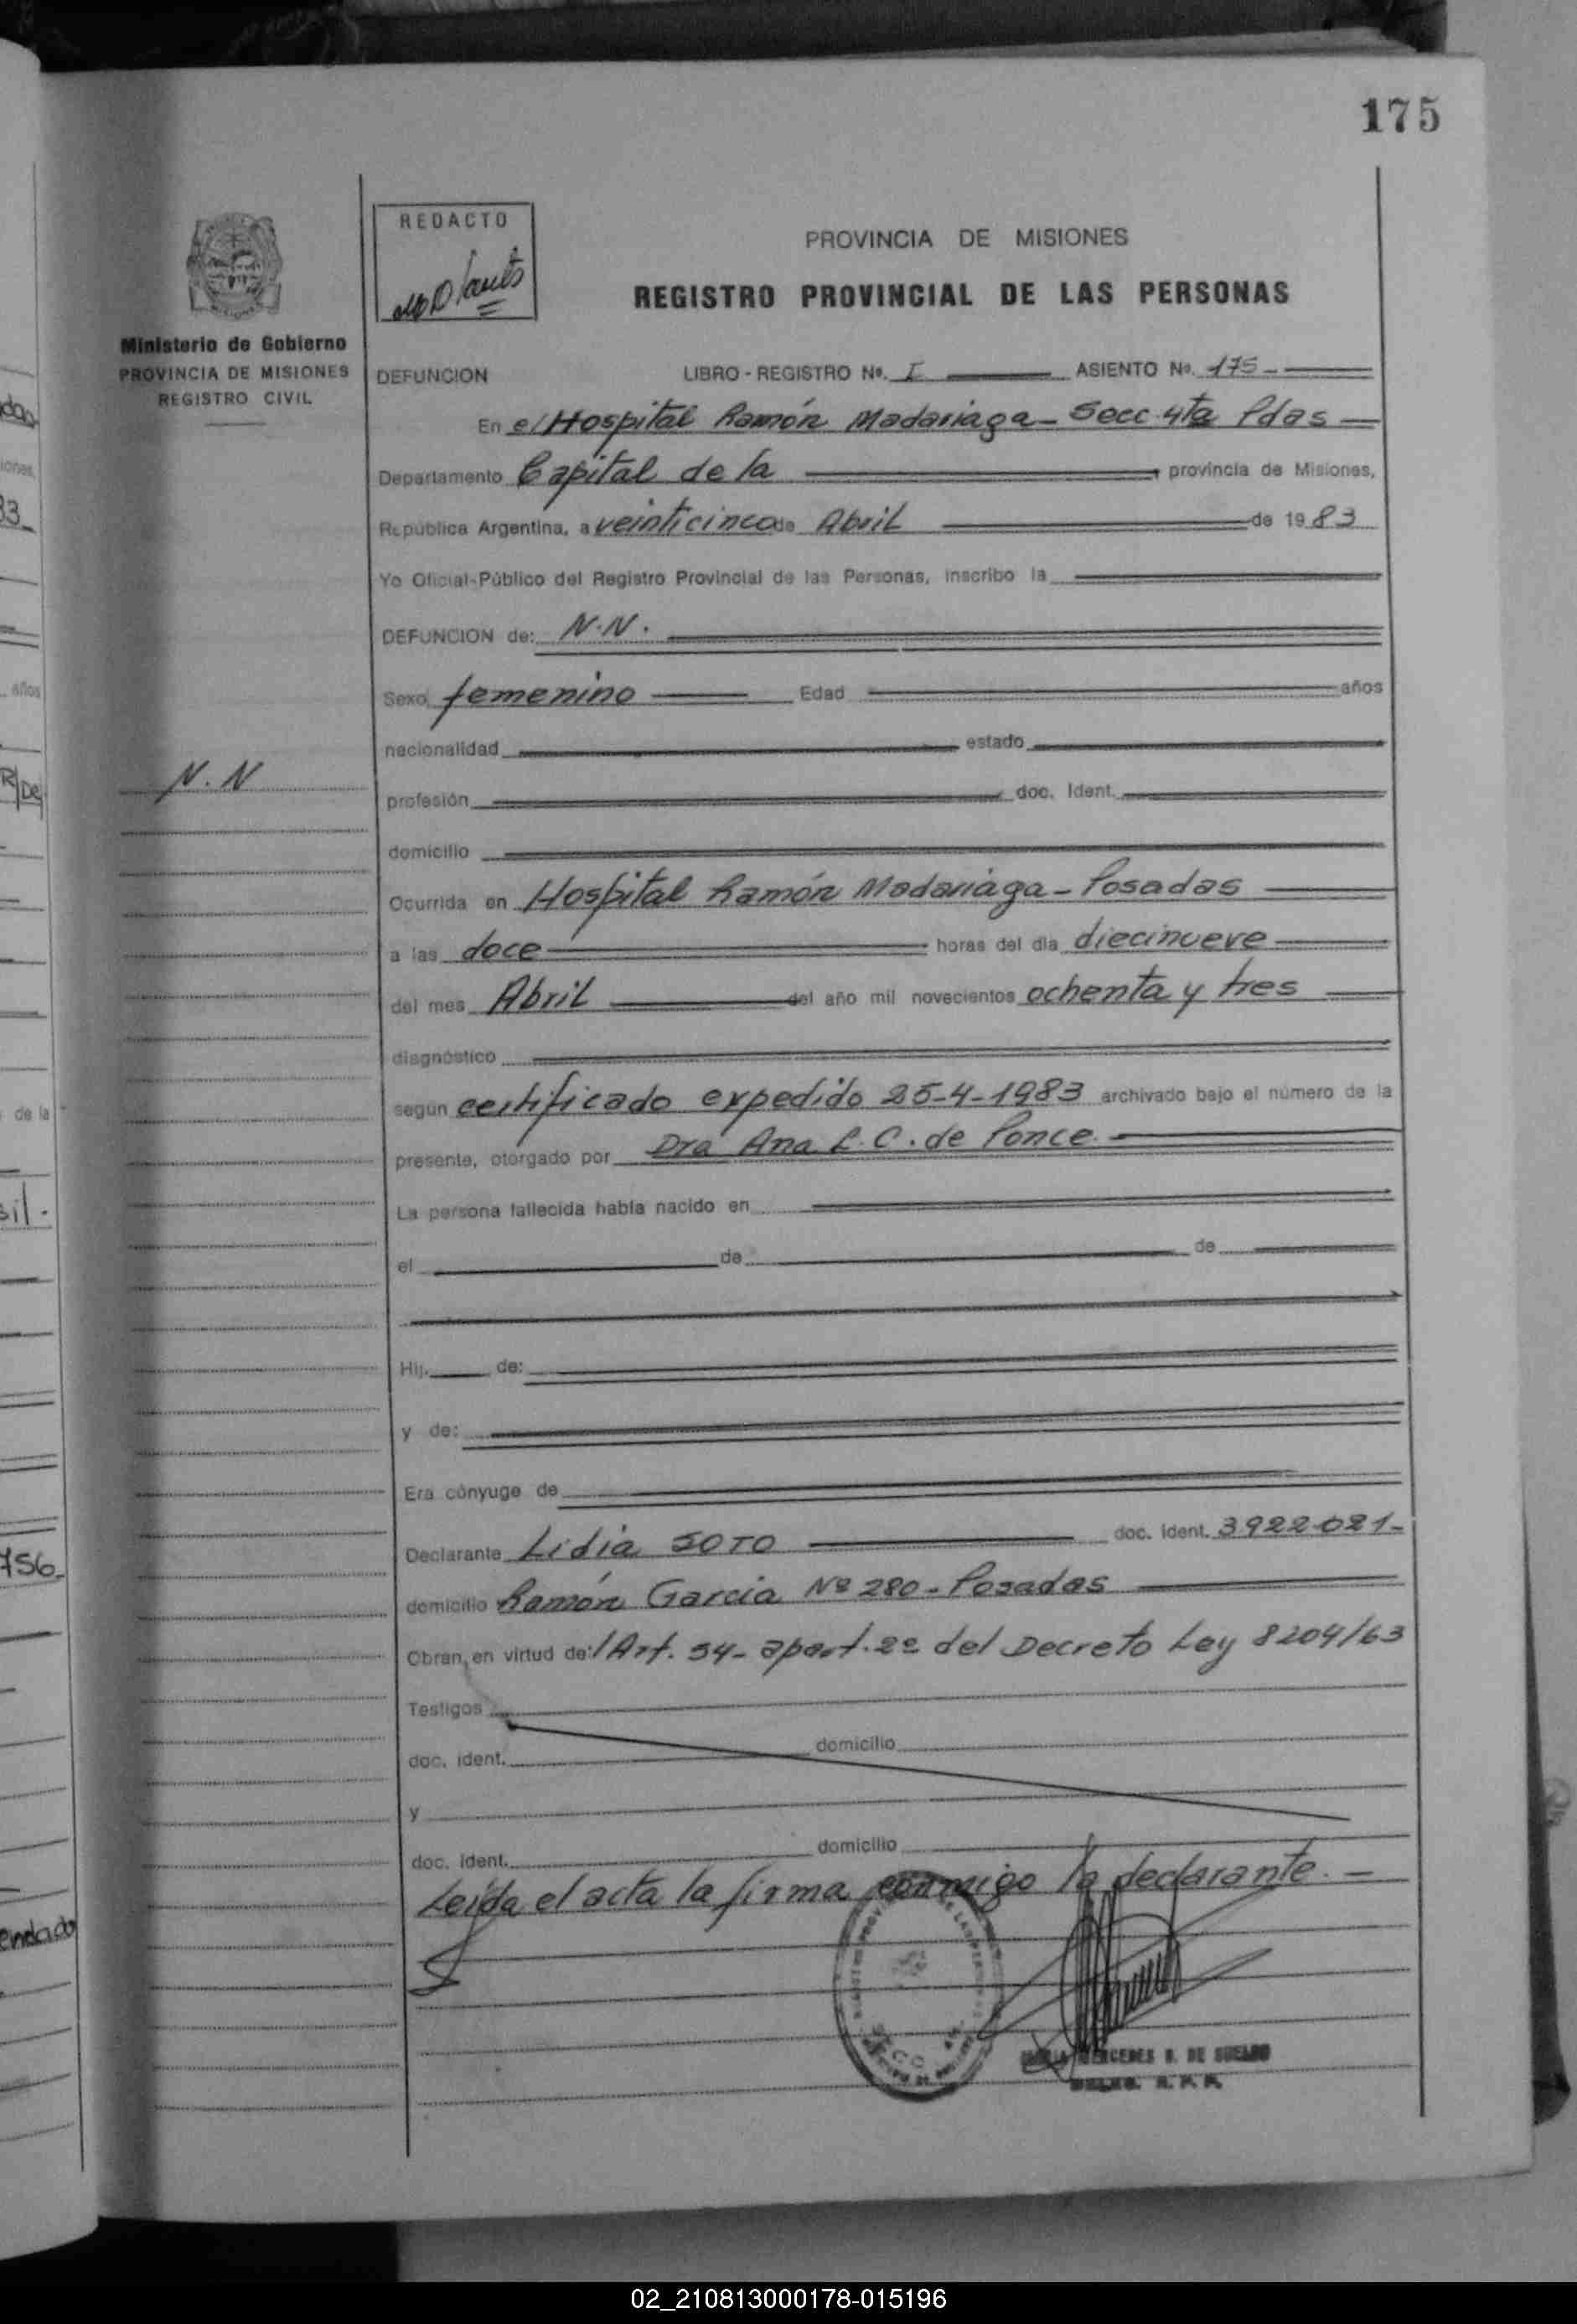 175
REDACTO
PROVINCIA DE MISIONES
REGISTRO PROVINCIAL DE LAS PERSONAS
Ministerio de Gobierno
PROVINCIA DE MISIONES
REGISTRO CIVIL
DEFUNCION LIBRO - REGISTRO Nº. I ASIENTO Nº. 175-
En el Hospital Ramón Madariaga - Secc. 4ta Pdas
Departamento Capital de la provincia de Misiones,
República Argentina, a veinticinco de Abril de 1983
Yo Oficial-Público del Registro Provincial de las Personas, inscribo la
DEFUNCION de: N.N.
Sexo femenino Edad años
nacionalidad estado
N.N
profesión doc. Ident.
domicilio
Ocurrida en Hospital Ramón Madariaga - Posadas
a las doce horas del día diecinueve
del mes Abril del año mil novecientos ochenta y tres
diagnóstico
según certificado expedido 25-4-1983 archivado bajo el número de la
presente, otorgado por Dra Ana L. C. de Ponce.
La persona fallecida había nacido en
el de de
Hij. de:
y de:
Era cónyuge de
Declarante Lidia SOTO doc. Ident. 3922.021-
domicilio Ramón Garcia Nº 280 - Posadas
Obran, en virtud del Art. 54- apart. 2º del Decreto Ley 8204/63
Testigos
doc. ident. domicilio
y
doc. ident. domicilio
Leída el acta la firma conmigo la declarante. -
MERCEDES
02_210813000178-015196